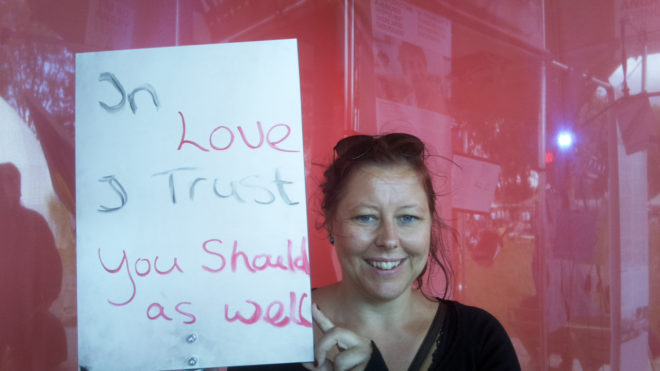 In
Love
I Trust
You Should
as well